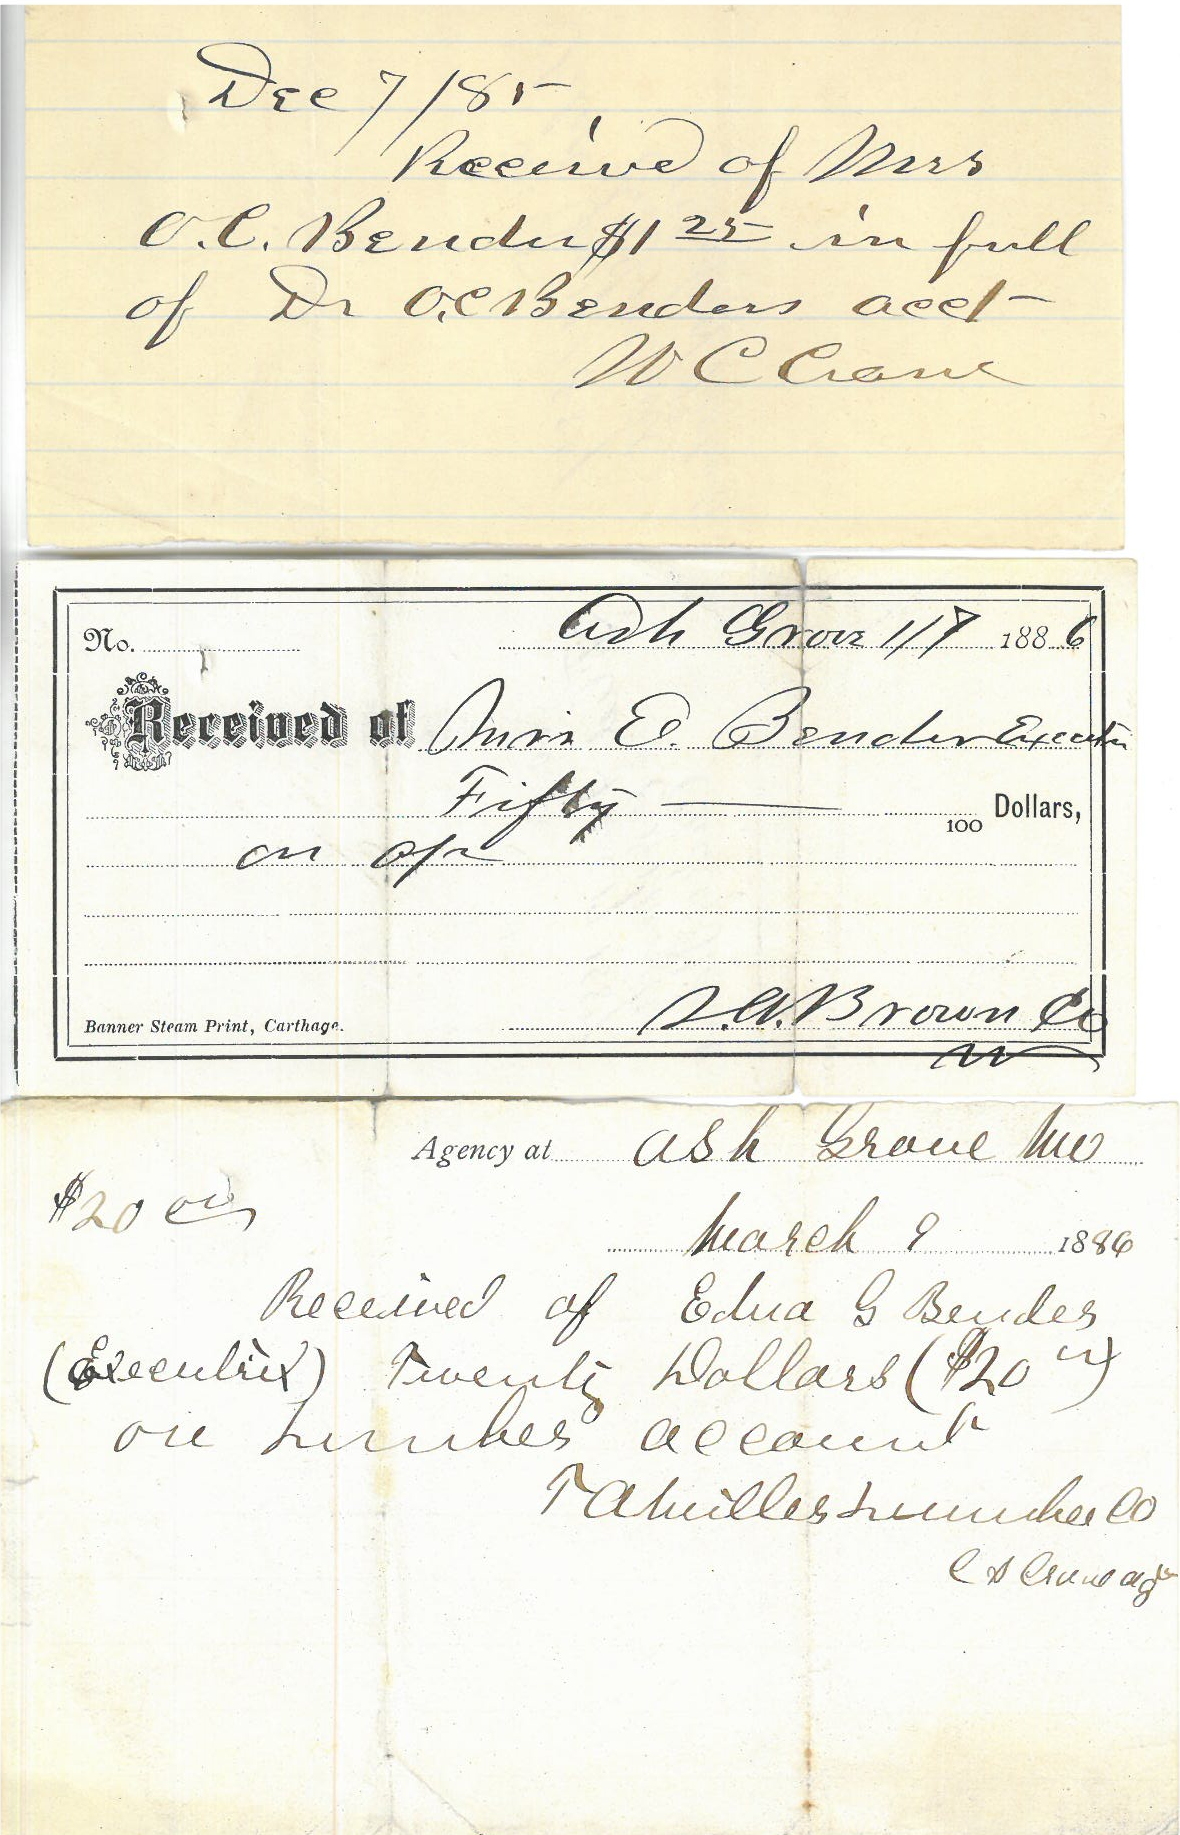 Dec 7/85
Received of Mrs
O.C. Bender $1 25 in full
of Dr O.C Benders acct
W C Crane
No. Ash Grove 1/7 1886
Received of Mrs E. Bender Executrix
Fifty 100 Dollars,
on a/c
Banner Steam Print, Carthage. Brown Co
Agency at Ash Grove Mo
$20 00
March 9 1886
Received of Edna G Bender
(Executrix) Twenty Dollars ($20 00)
on Lumber account
T A Miller Lumber Co
C S Crane agt